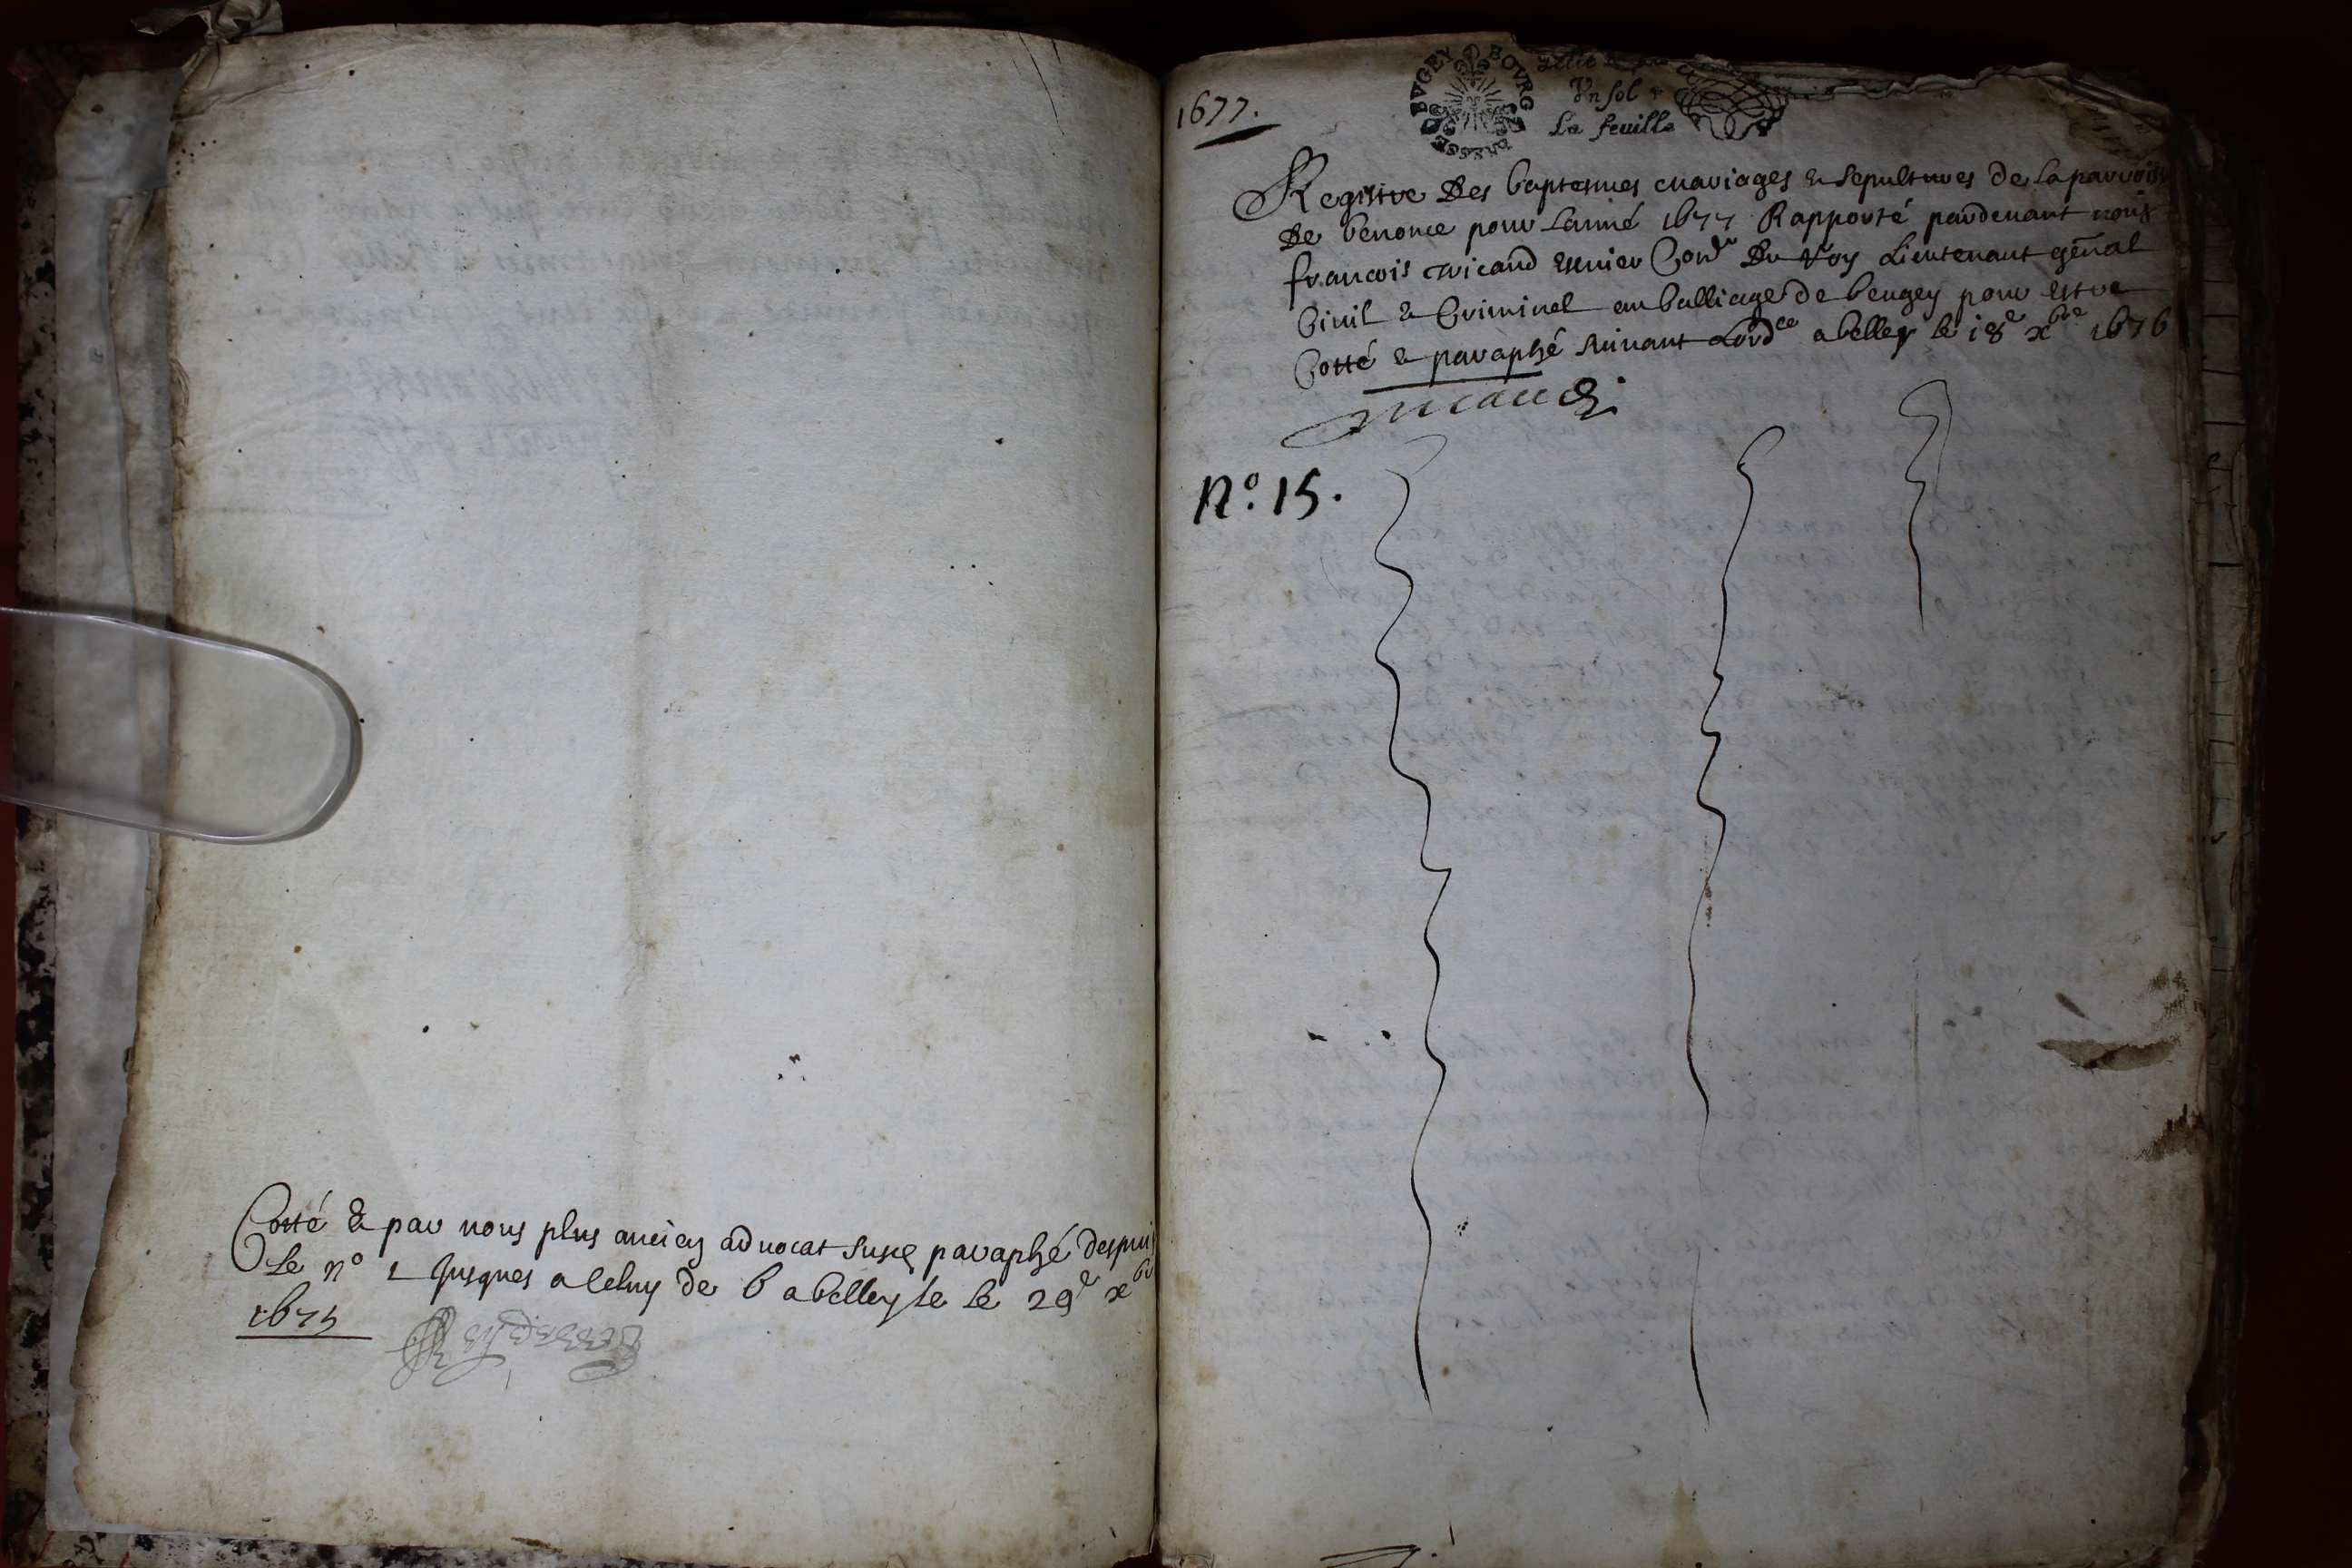 Cotté & par nous plus ancien advocat susd paraphé despuis
Le n° 1 Jusques a Celuy de 6 a belley le Le 29e xbr
1675
1677.
BVGEY BOVRG
Vn sol
La feuille
Registre Des baptesmes mariages & sepultures de la parroisse
De benonce pour Lanné 1677 Rapporté pardeuant nous
francois micaud escuier Con.r Du Roy Lieutenant genal
Ciuil & Criminel au balliage de beugey pour estre
Cotté & paraphé suiuant Lordce a belley le 18e xbre 1676
micaud
N° 15.